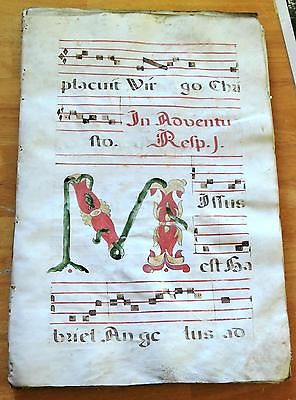 placuit Vir go Chri
sto. In Adventu
Resp. j.
M issus
est Ga
briel Ange lus ad